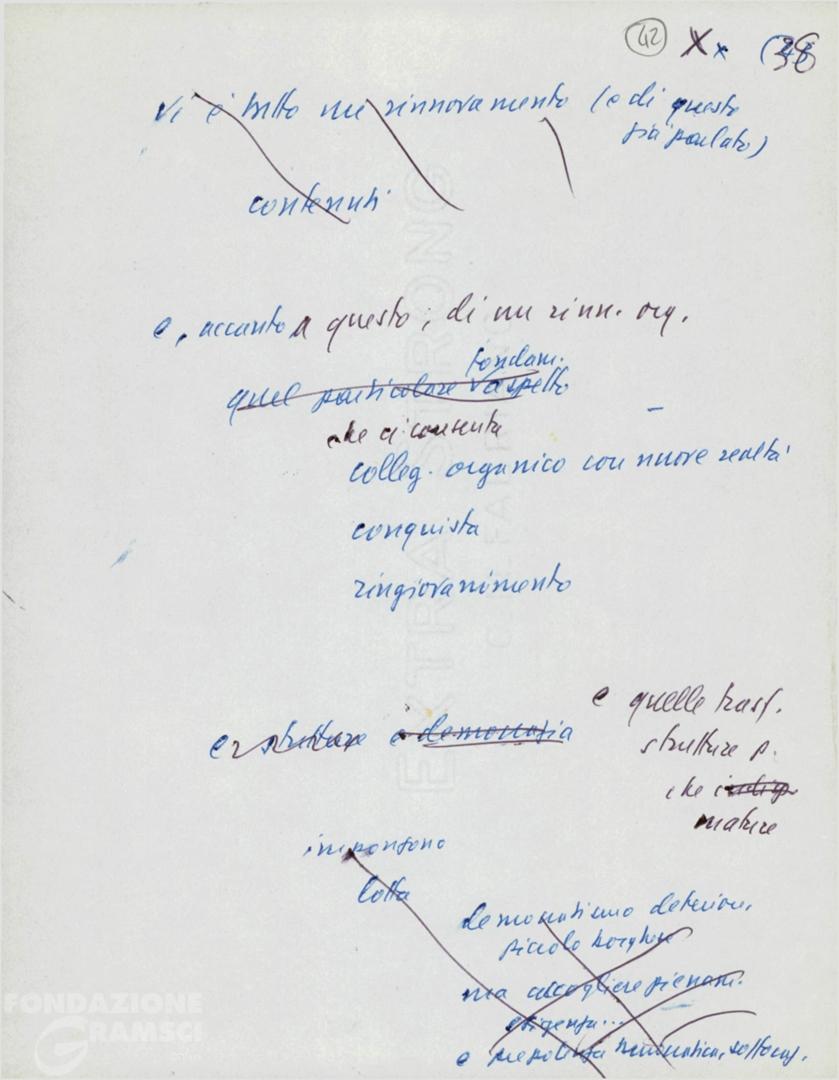 42 X x (38
vi è tutto un rinnovamento (e di questo
già parlato)
contenuti
e, accanto a questo, di un rinn. org.
fondam.
quel particolare aspetto
che ci consenta
colleg. organico con nuove realtà
conquista
ringiovanimento
e quelle trasf.
e strutture e democrazia
strutture p.
che
mature
impongono
lotta
democraticismo deterior.
piccolo borghese
ma accogliere pienam.
esigenza...
e
FONDAZIONE
GRAMSCI
EXTRA STRONG